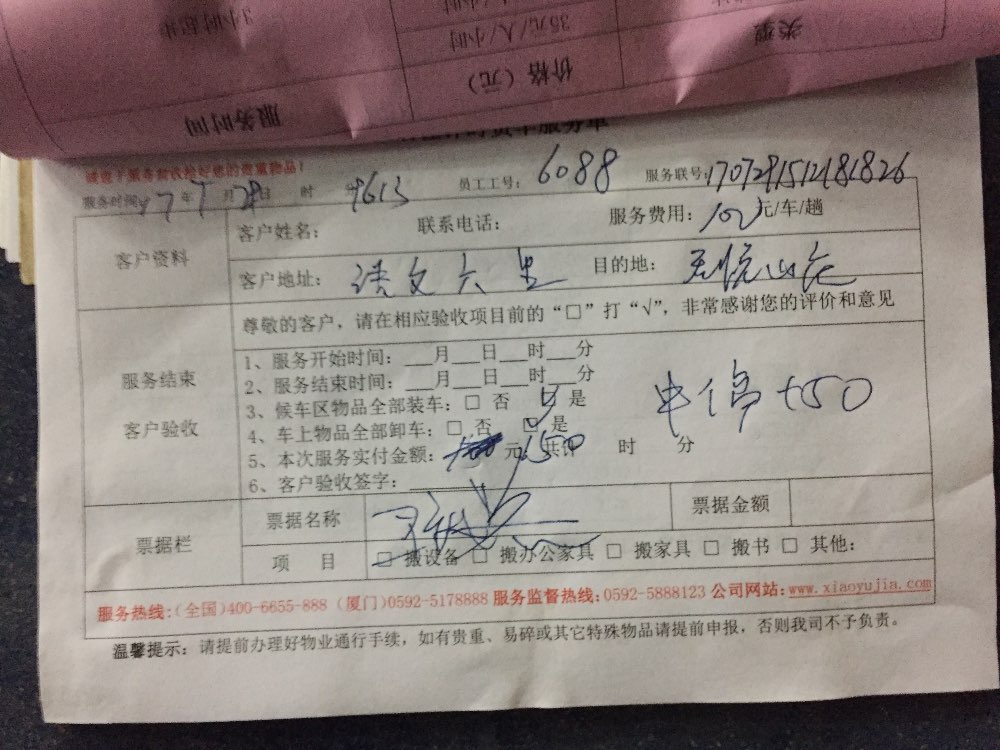 3小时起 35元/人/小时
服务时间 价格（元） 类型
车服务单
诚您于服务前收拾好您的贵重物品！
服务时间：17年7月29日 时 分 9613 员工工号：6088 服务联号：1707291512181826
客户资料 客户姓名： 联系电话： 服务费用：100元/车/趟
客户地址： 文六 目的地：
尊敬的客户，请在相应验收项目前的“□”打“√”，非常感谢您的评价和意见
服务结束 客户验收
1、服务开始时间：___月___日___时___分
2、服务结束时间：___月___日___时___分
3、候车区物品全部装车：□ 否 ☑ 是
4、车上物品全部卸车：□ 否 ☑ 是
中停+50
5、本次服务实付金额： 元，共计 150 时 分
6、客户验收签字：
票据栏 票据名称 票据金额
项 目 □ 搬设备 □ 搬办公家具 □ 搬家具 □ 搬书 □ 其他：
服务热线：（全国）400-6655-888 （厦门）0592-5178888 服务监督热线：0592-5888123 公司网站：www.xiaoyujia.com
温馨提示：请提前办理好物业通行手续，如有贵重、易碎或其它特殊物品请提前申报，否则我司不予负责。